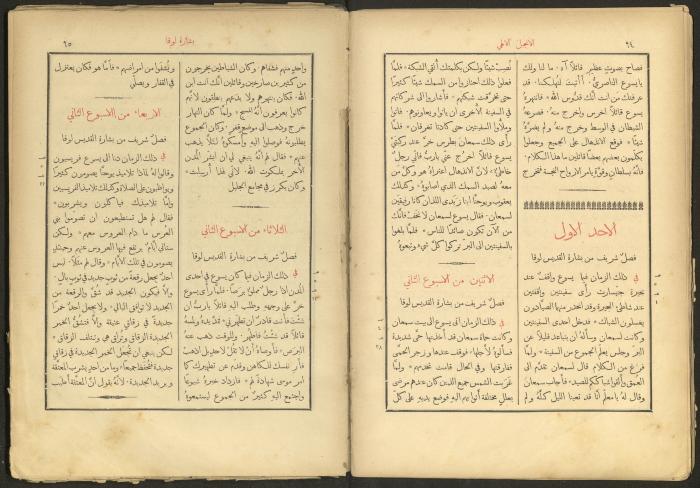 ٦٤
الانجيل الالهي
فصاح بصوتٍ عظيمٍ قائلاً آه. ما لنا ولك
يا يسوع الناصريّ. أأتيتَ لتُهلكنا. قد
عرفتك مَن انت انَّك قدّوس الله. فانتهرهُ
يسوع قائلاً اخرس واخرج منهُ. فصرعهُ
الشيطان في الوسط وخرج منهُ ولم يضرَّهُ
شيئًا * فوقع الانذهال على الجميع وجعلوا
يكلّمون بعضهم بعضًا قائلين ما هذا الكلام.
فانَّهُ بسلطانٍ وقوَّةٍ يامر الارواح النجسة فتخرج
الاحد الاول
فصلٌ شريف من بشارة القديس لوقا
في ذلك الزمان فيما يسوع واقفٌ عند
بحيرة جنيسارت رأَى سفينتين واقفتين
عند شاطئ البحيرة وقد انحدر منها الصيّادون
يغسلون الشباك * فدخل احدى السفينتين
وكانت لسمعان وسأَلهُ ان يتباعد قليلاً عن
البرّ وجلس يعلّم الجموع من السفينة * ولمَّا
فرغ من الكلام قال لسمعان تقدَّم الى
العمق وأَلقوا شباككم للصيد * فأجاب سمعان
وقال لهُ يا معلّم انَّا قد تعبنا الليل كلَّهُ ولم
نُصِب شيئًا ولكن بكلمتك أُلقي الشبكة * فلمَّا
فعلوا ذلك احتازوا من السمك شيئًا كثيرًا
حتى تخرَّقت شبكتهم * فأشاروا الى شركائهم
في السفينة الأخرى ان يأتوا ويعاونوهم. فأتوا
وملأوا السفينتين حتى كادتا تغرقان * فلمَّا
رأَى ذلك سمعان بطرس خرَّ عند ركبتَي
يسوع قائلاً اخرج عني يا ربّ فاني رجلٌ
خاطئٌ * لانَّ الانذهال اعتراهُ هو وكلَّ من
معهُ لصيد السمك الذي اصابوهُ * وكذلك
يعقوب ويوحنا ابنا زبدى اللذان كانا رفيقين
لسمعان. فقال يسوع لسمعان لا تخف فانَّك
من الآن تكون صائدًا للناس * فلمَّا بلغوا
بالسفينتين الى البرّ تركوا كلَّ شيء وتبعوهُ
الاثنين من الاسبوع الثاني
فصلٌ شريف من بشارة القديس لوقا
في ذلك الزمان اتى يسوع الى بيت سمعان
وكانت حماة سمعان قد أخذتها حمَّى شديدة
فسأَلوهُ لأجلها * فوقف عندها وزجر الحمَّى
ففارقتها. وفي الحال قامت تخدمهم * ولمَّا
غربت الشمس جميع الذين كان عندهم مرضى
بعللٍ مختلفة أتوا بهم اليهِ فوضع يديهِ على كلّ
بشارة لوقا
٦٥
واحدٍ منهم فشفاهم * وكان الشياطين يخرجون
من كثيرين صارخين وقائلين انَّك انت ابن
الله. فكان ينتهرهم ولا يدعهم ينطقون لأنَّهم
كانوا يعرفون أنَّهُ المسيح * ولمَّا كان النهار
خرج وذهب الى موضعٍ قفرٍ * وكان الجموع
يطلبونهُ فوصلوا اليهِ وأمسكوهُ لئلاَّ يذهب
عنهم * فقال لهم انَّهُ ينبغي لي ان ابشّر المدن
الأخر بملكوت الله. لاني لهذا أُرسلت *
وكان يكرز في مجامع الجليل
الثلاثاء من الاسبوع الثاني
فصلٌ شريف من بشارة القديس لوقا
في ذلك الزمان فيما كان يسوع في احدى
المدن اذا رجلٌ مملوءٌ برصًا. فلمَّا رأَى يسوع
خرَّ على وجههِ وطلب اليهِ قائلاً يا ربّ ان
شئتَ فانت قادرٌ ان تطهّرني * فمدَّ يدهُ ولمسهُ
قائلاً قد شئتُ فاطهر. وللوقت ذهب عنهُ
البرص * فأوصاهُ أنْ لا تقُلْ لأحدٍ بل اذهب
فأَرِ نفسك للكاهن وقدّم عن تطهيرك كما
امر موسى شهادةً لهم * فازداد خبرهُ شيوعًا
واجتمع اليهِ كثيرٌ من الجموع ليستمعوهُ
ويُشفَوا من امراضهم * فأمَّا هو فكان يعتزل
في القفار ويصلّي
الاربعاء من الاسبوع الثاني
فصلٌ شريف من بشارة القديس لوقا
في ذلك الزمان دنا الى يسوع فريسيون
وقالوا لهُ لماذا تلاميذ يوحنا يصومون كثيرًا
ويواظبون على الصلاة وكذلك تلاميذ الفريسيين
وامَّا تلاميذك فيأكلون ويشربون *
فقال لهم هل تستطيعون ان تصوّموا بني
العرس ما دام العروس معهم * ولكن
ستأتي أيَّامٌ يُرفع فيها العروس عنهم وحينئذٍ
يصومون في تلك الأيَّام * وقال لهم مثلاً. ليس
احدٌ يجعل رقعةً من ثوبٍ جديد في ثوبٍ بالٍ.
والاَّ فيكون الجديد قد شقَّ والرقعة من
الجديد لا توافق البالي * ولا يجعل احدٌ خمرًا
جديدةً في زقاقٍ عتيقة والاَّ فتشقّ الخمر
الجديدة الزقاق وتُراق هي وتتلف الزقاق *
لكن ينبغي ان تُجعل الخمر الجديدة في زقاقٍ
جديدة فتُحفظا جميعًا * وما من احدٍ يشرب المعتَّقة
ويريد الجديدة. لانَّهُ يقول انَّ المعتَّقة أطيب